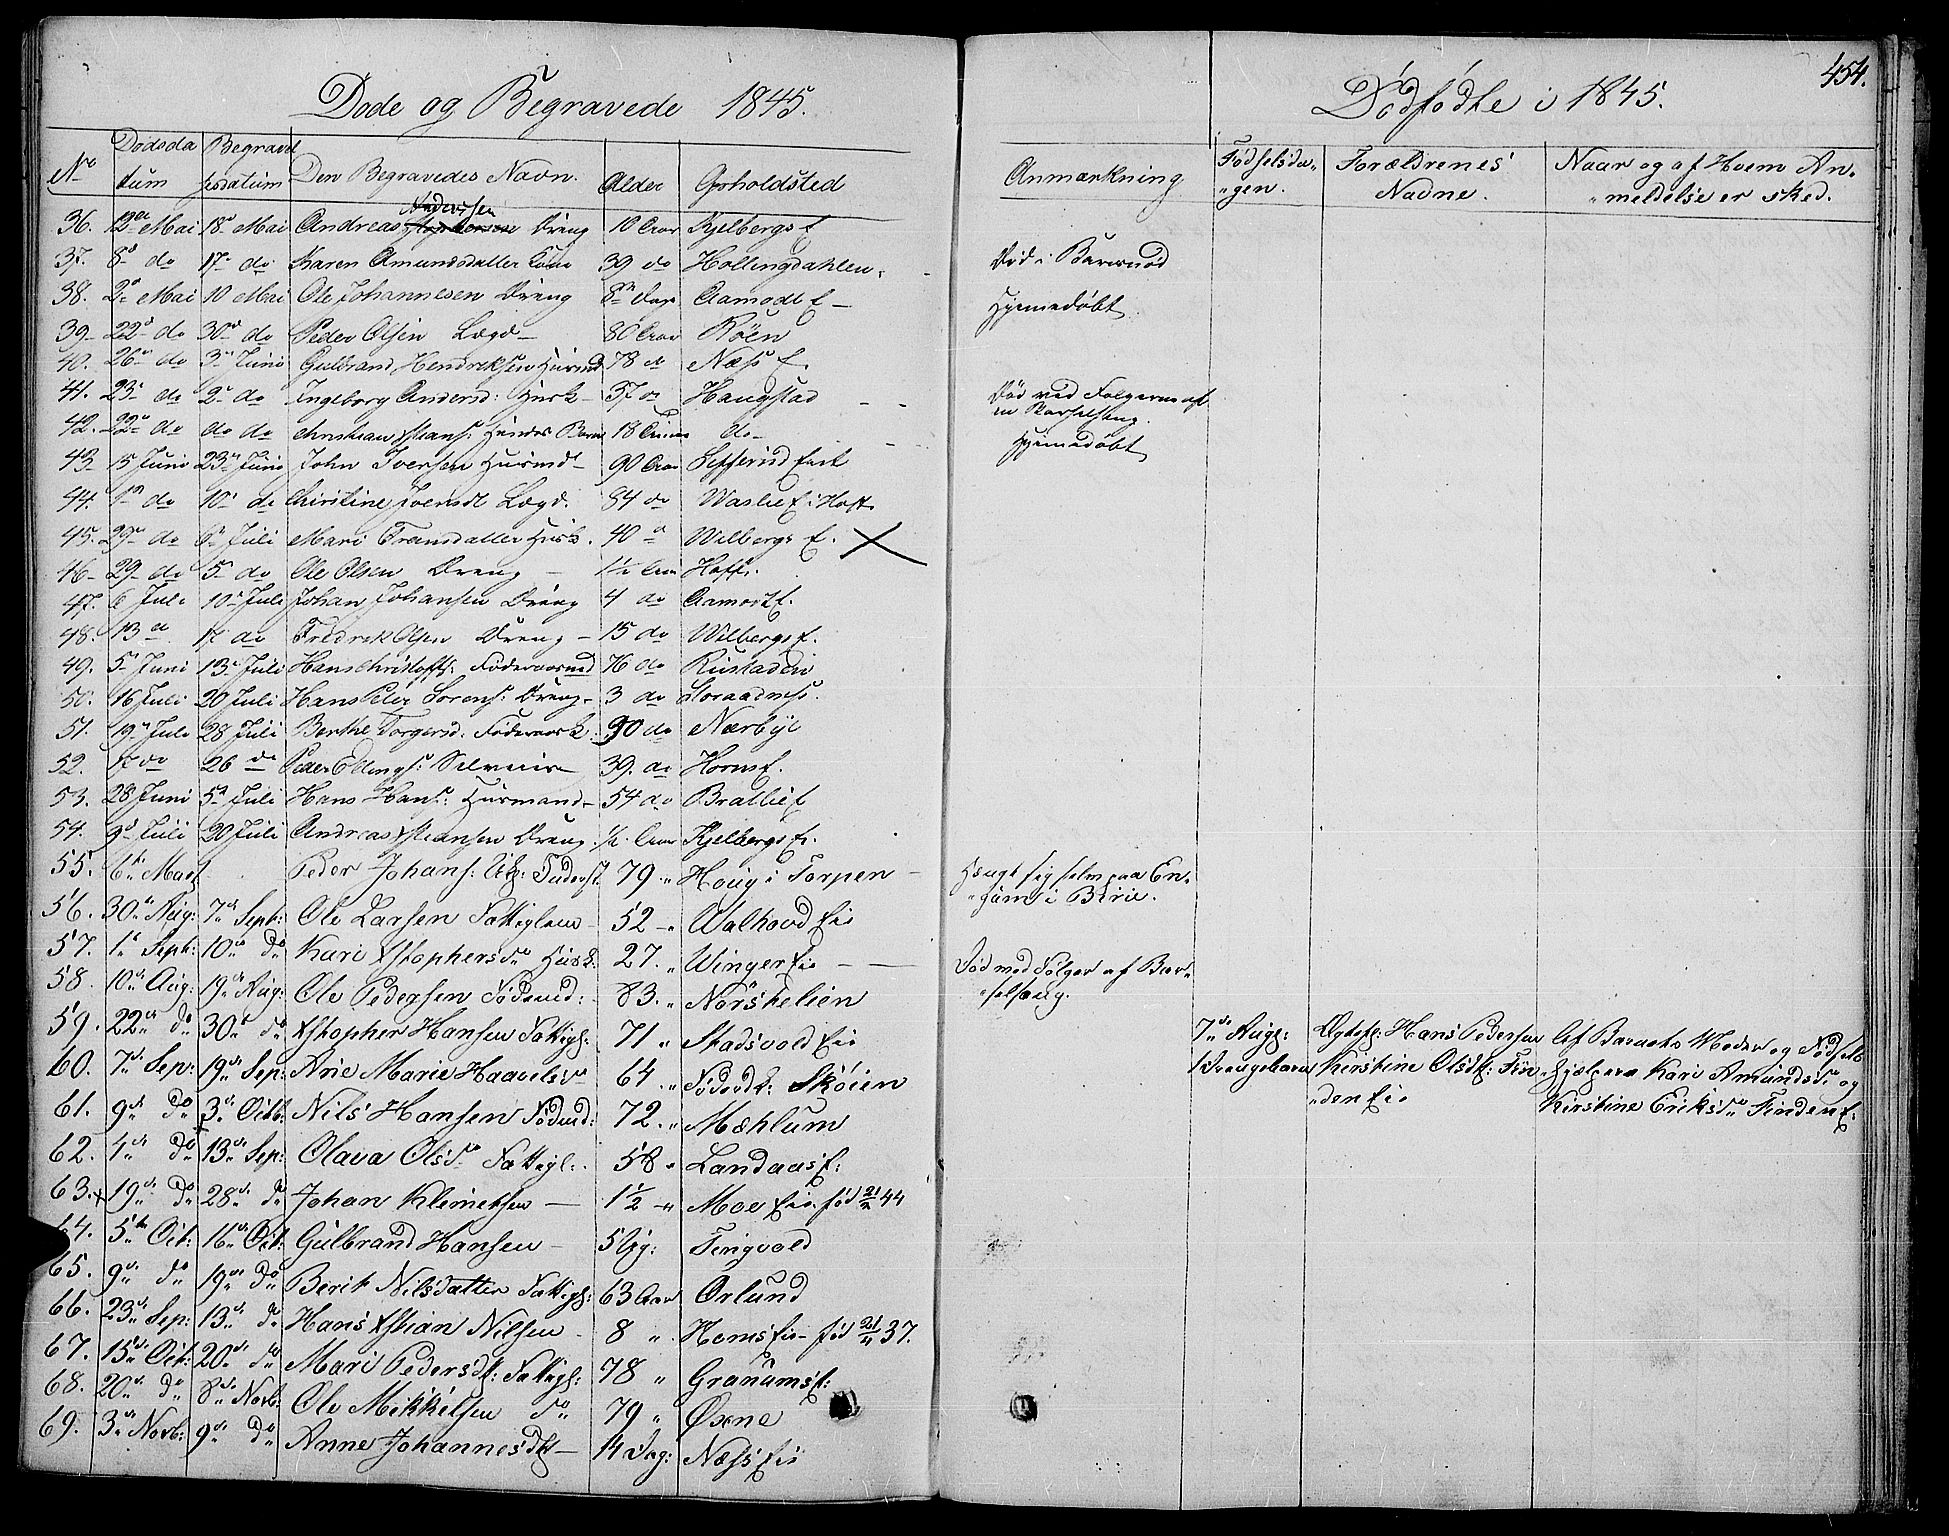 Døde og Begravede 1845.
No Dødsdatum Begravelsesdatum Den Begravedes Navn. Alder Opholdsted
Andersen
36. 12te Mai 18de Mai Andreas Dreng 10 Aar Kjelbergs E
37. 8de do 17de do Karen Amundsdatter Kone 39 do Hollingdahlen
38. 2de Mai 10 Mai Ole Johannesen Dreng 8te Dage Aamodt E
39 22de do 30de do Peder Olsen Lægd 80 Aar Röen
40. 26de do 3de Juni Gulbrand Hendreksen Husmd 78 do Næss E.
41. 23de do 2de do Ingeborg Andersd: Husk 37 do Haugstad
42. 22de do do do Christian Xstians: Huses Barn 18 do
43 15 Juni 23de Juni John Iversen Husmd 90 Aar Seffernd Eiet
44. 1ste do 10de do Christine Joensdt Lægd. 84 do Waslie E i Hoff.
45. 29de do 6te Juli Mari Fransdatter Husk. 40 do Wilbergs E.
46 29 do 5te do Ole Olsen Dreng 1½ Aar Hoff.
47. 6 Juli 10de Juli Johan Johansen Dreng 4 do Aamodt E.
48. 13 do 17 do Fredrek Olsen Dreng 15 do Wilbergs E.
49. 5te Juni 13de Juli Hans Christoffs: Föderaasmd 76 do Rustaden
50. 16 Juli 20 Juli Hans Peter Sorens: Dreng 3 do Storaadness.
51. 19de Juli 28 Juli Berthe Torgersd: Föderaask. 90 do Nærbye
52. 17 do 26 do Peder Ellings: Selveier 39. do Horns E.
53. 28 Juni 5te Juli Hans Hans: Husmand 54 do Bratlie E
54. 9de Juli 20 Juli Andreas Xstiansen Dreng ½ Aar Kjelbergs E.
55. 6te Marts Peder Johans: 79 " Houg i Torpen
56. 30te Aug: 7de Sept: Ole Larsen Fattiglem 52 " Walhovd Eie
57. 1ste Sept: 10de do Kari Xstophersdr Husk: 27. " Winger Eie
58. 10de Aug: 19de Aug: Ole Pedersen Födmd: 83. " Nörstelien
59. 22de do 30te do Xstopher Hansen Fattigl: 71 " Stadsvold Eie
60. 7de Sep: 19de Sep: Ane Marie Haavelsdr 64 " Födrdk: Skôien
61. 9de do 3de Octb: Nils Hansen Födmd: 72. " Mæhlum
62. 4de do 13de Sep: Olava Olsdr Fattigl: 58 " Landaas E:
63. 19de do 28de do Johan Klemetsen 1½ " Moe Eie. fød 44
64. 5te Oct: 16de Oct: Gulbrand Hansen 5 Ug: Tingvold
65. 9de do 19de do Berit Nilsdatter Fattigl: 63 Aar Orlund
66. 23de Sep: 13de do Hans Xstian Nilsen 8 " Homs Eie fød 21/11 37.
67. 15de Oct: 20de do Mari Pedersdt: Fattigl: 78 " Granums E:
68. 20de do 8de Novb: Ole Mikkelsen do 79 " Øxne
69. 3de Novb: 9de do Anne Johannesdt 14 Dag: Næss Eie
454.
Dødfødte i 1845.
Anmærkning Fødselsdagen. Forældrenes Navne. Naar og af Hvem Anmeldelse er sked.
Død i Barnsnød
Hjemmedøbt
Död ved Folgerne af
en Barselseng.
Hjemmedøbt
Hængt sig selv paa En-
gum i Birie.
Död med Fölger af Bar-
selseng.
7de Aug: Ægtefl: Hans Pedersen Af Barnets Moder og Födsels
1 Drengebarn Kirstine Olsdt: Fin- hjælpere Kari Amundsdr og
den Eie Kirstine Eriksdr Finden E: